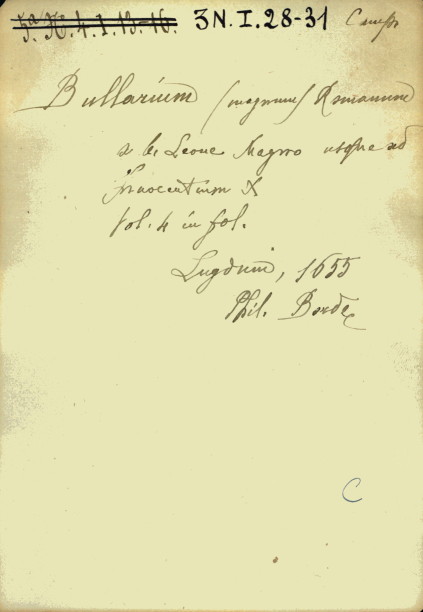 5a N. 4. I. 13-16. 3N.I.28-31
Bullarium (magnum) Romanum
a b. Leone Magno usque ad
Innocentium X
Vol. 4 in fol.
Lugduni, 1655
Phil. Borde
C